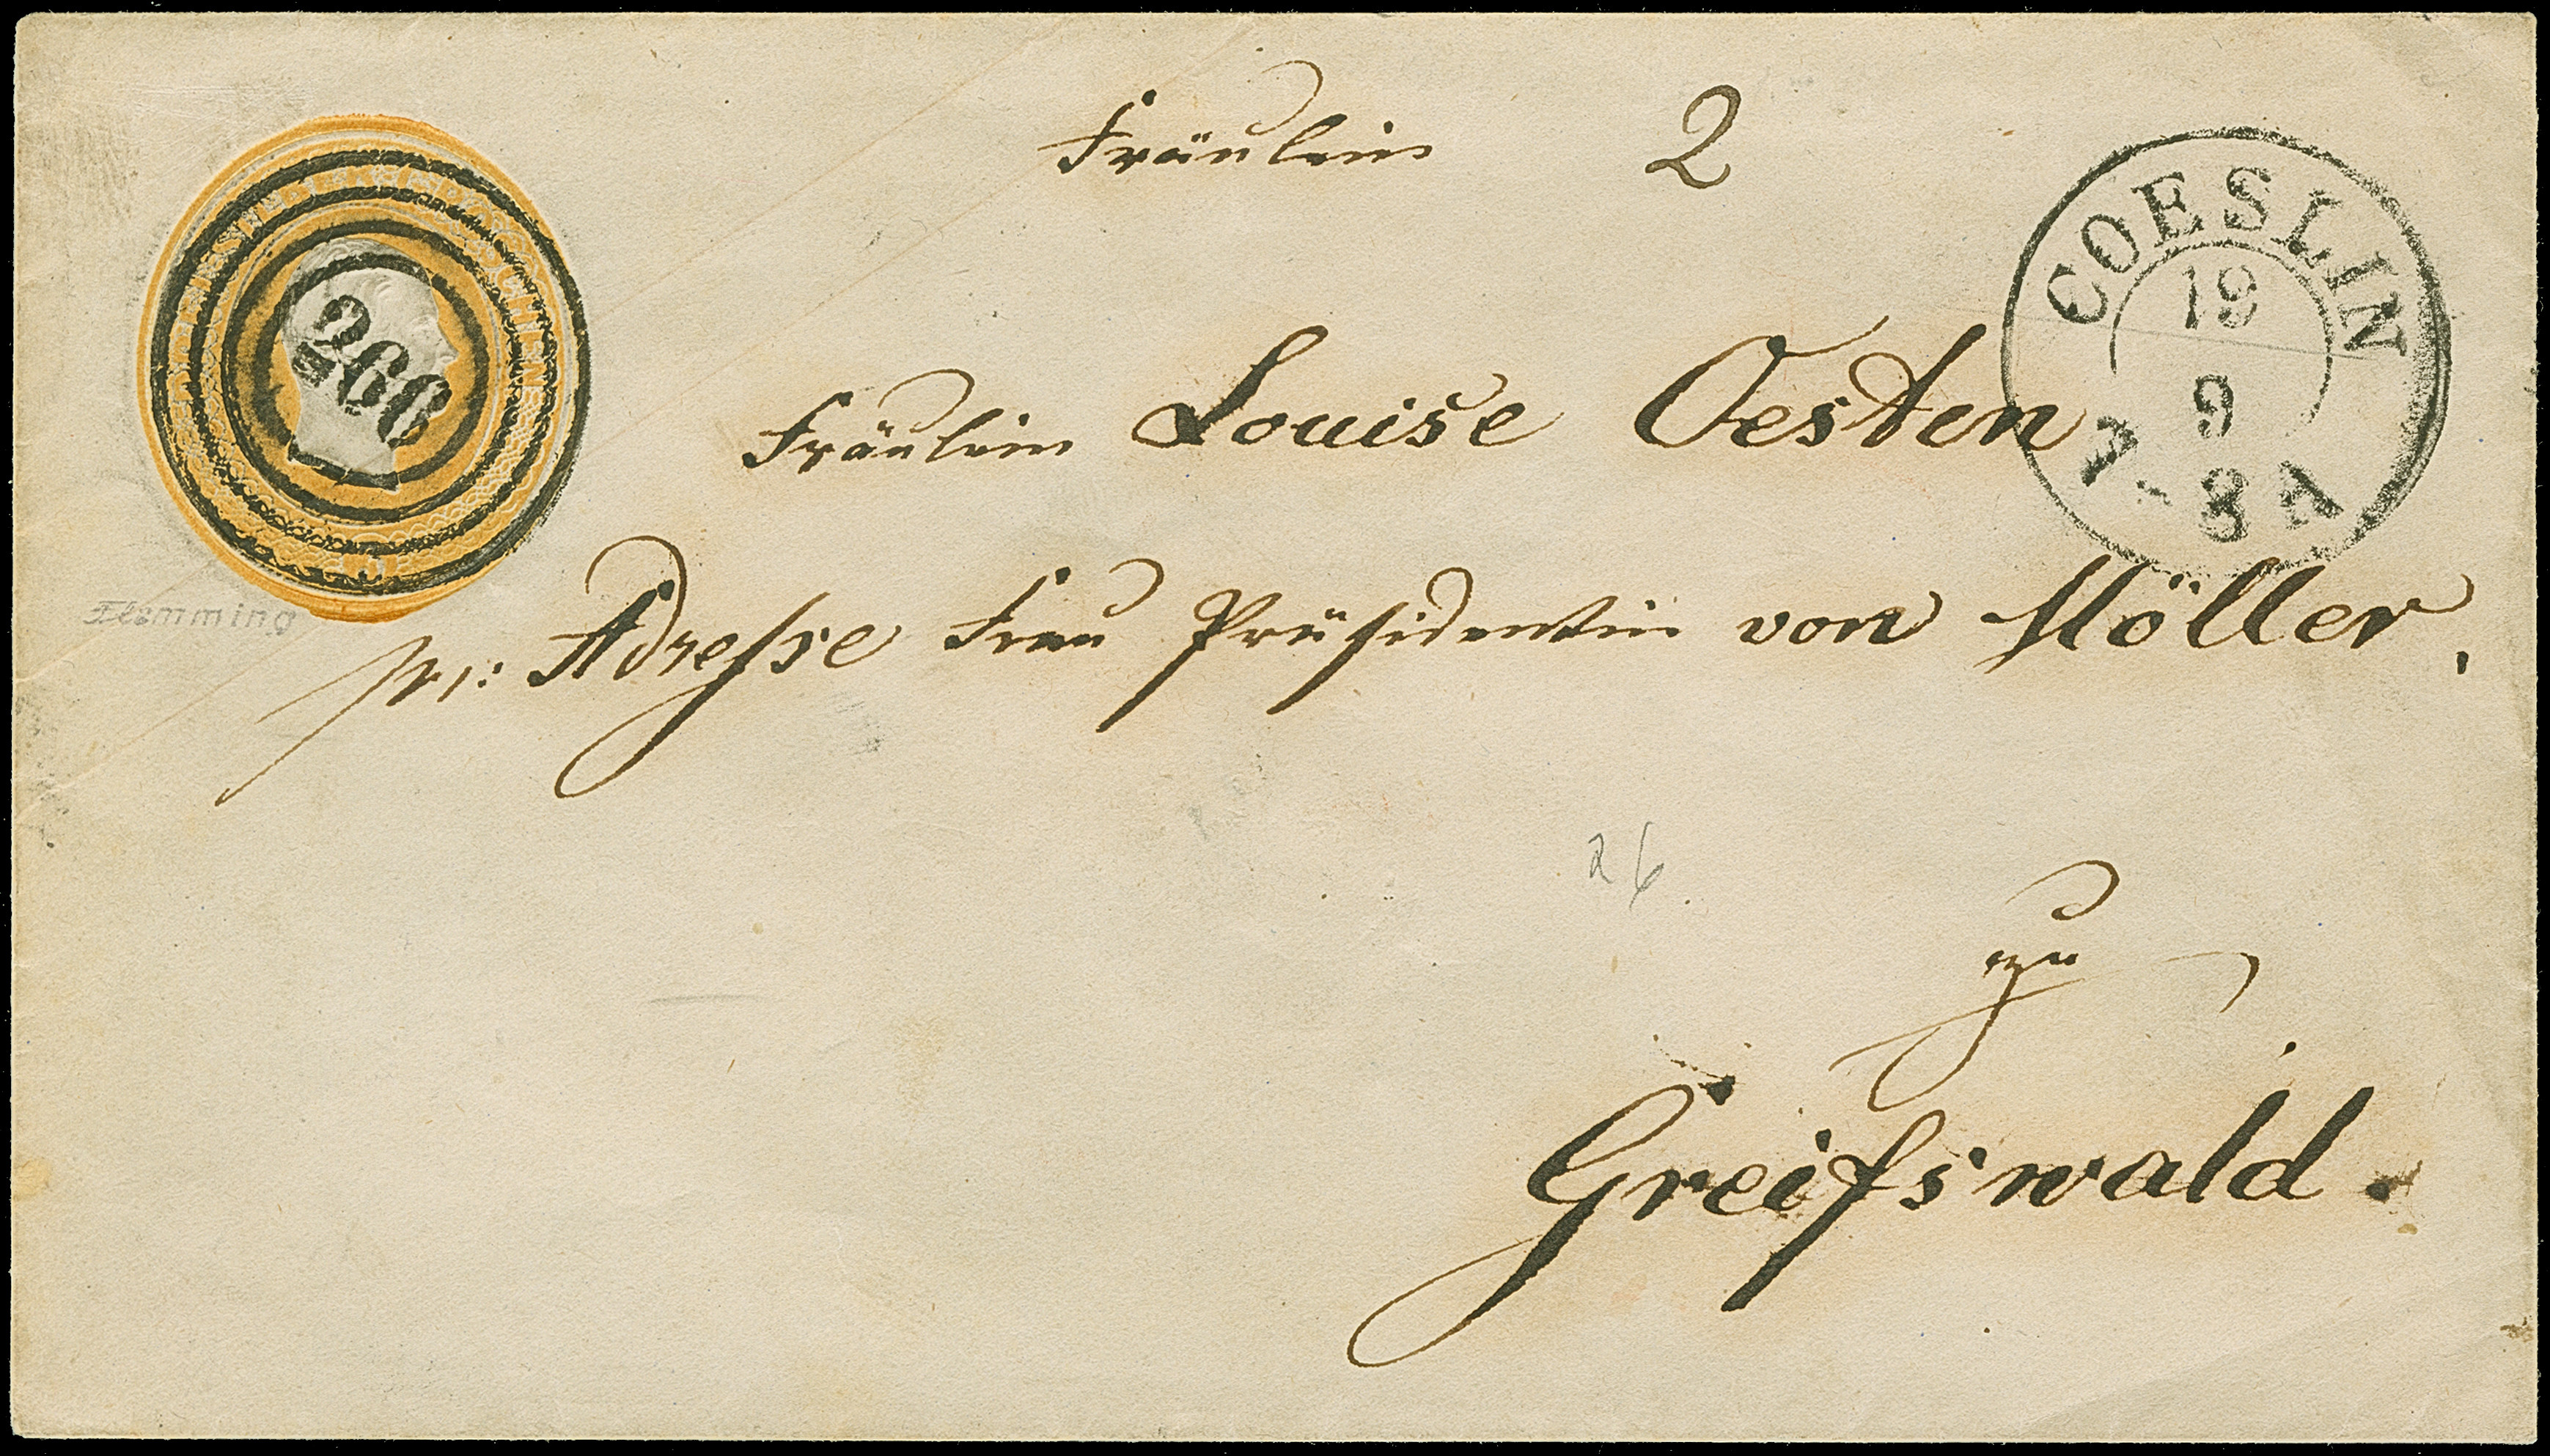 Fräulein 2
COESLIN
19
9
7-8A
266
Fräulein Louise Oesten
Flemming
pr: Adresse Frau Präsidentin von Möller,
26
zu
Greifswald.